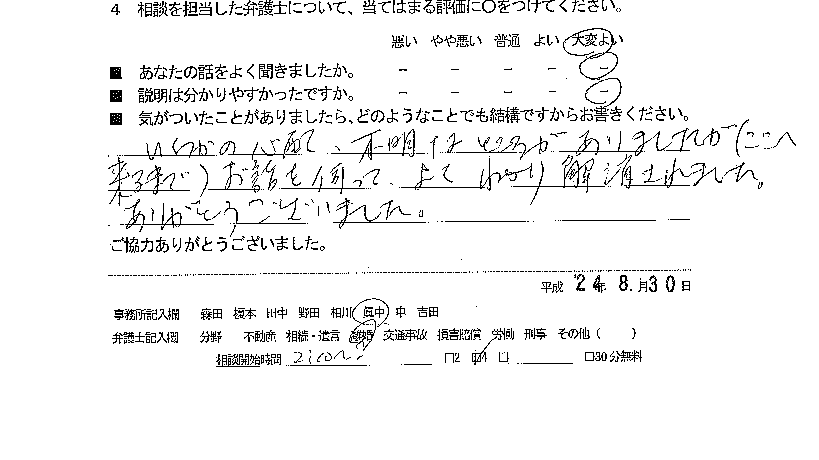 4 相談を担当した弁護士について、当てはまる評価に○をつけてください。
悪い やや悪い 普通 よい 大変よい
■ あなたの話をよく聞きましたか。 − − − − −
■ 説明は分かりやすかったですか。 − − − − −
■ 気がついたことがありましたら、どのようなことでも結構ですからお書きください。
いくつかの心配、不明なところがありましたが(ここへ
来るまで)お話を伺って、よくわかり解消されました。
ありがとうございました。
ご協力ありがとうございました。
平成 '24年 8.月30日
事務所記入欄 森田 榎本 田中 野田 相川 眞中 中 吉田
弁護士記入欄 分野 不動産 相続・遺言 離婚 交通事故 損害賠償 労働 刑事 その他( )
相談開始時間 □2 □4 □ □30分無料